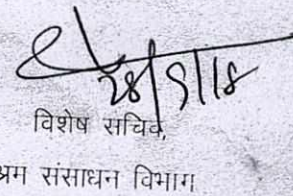 28/9/18
विशेष सचिव,
श्रम संसाधन विभाग